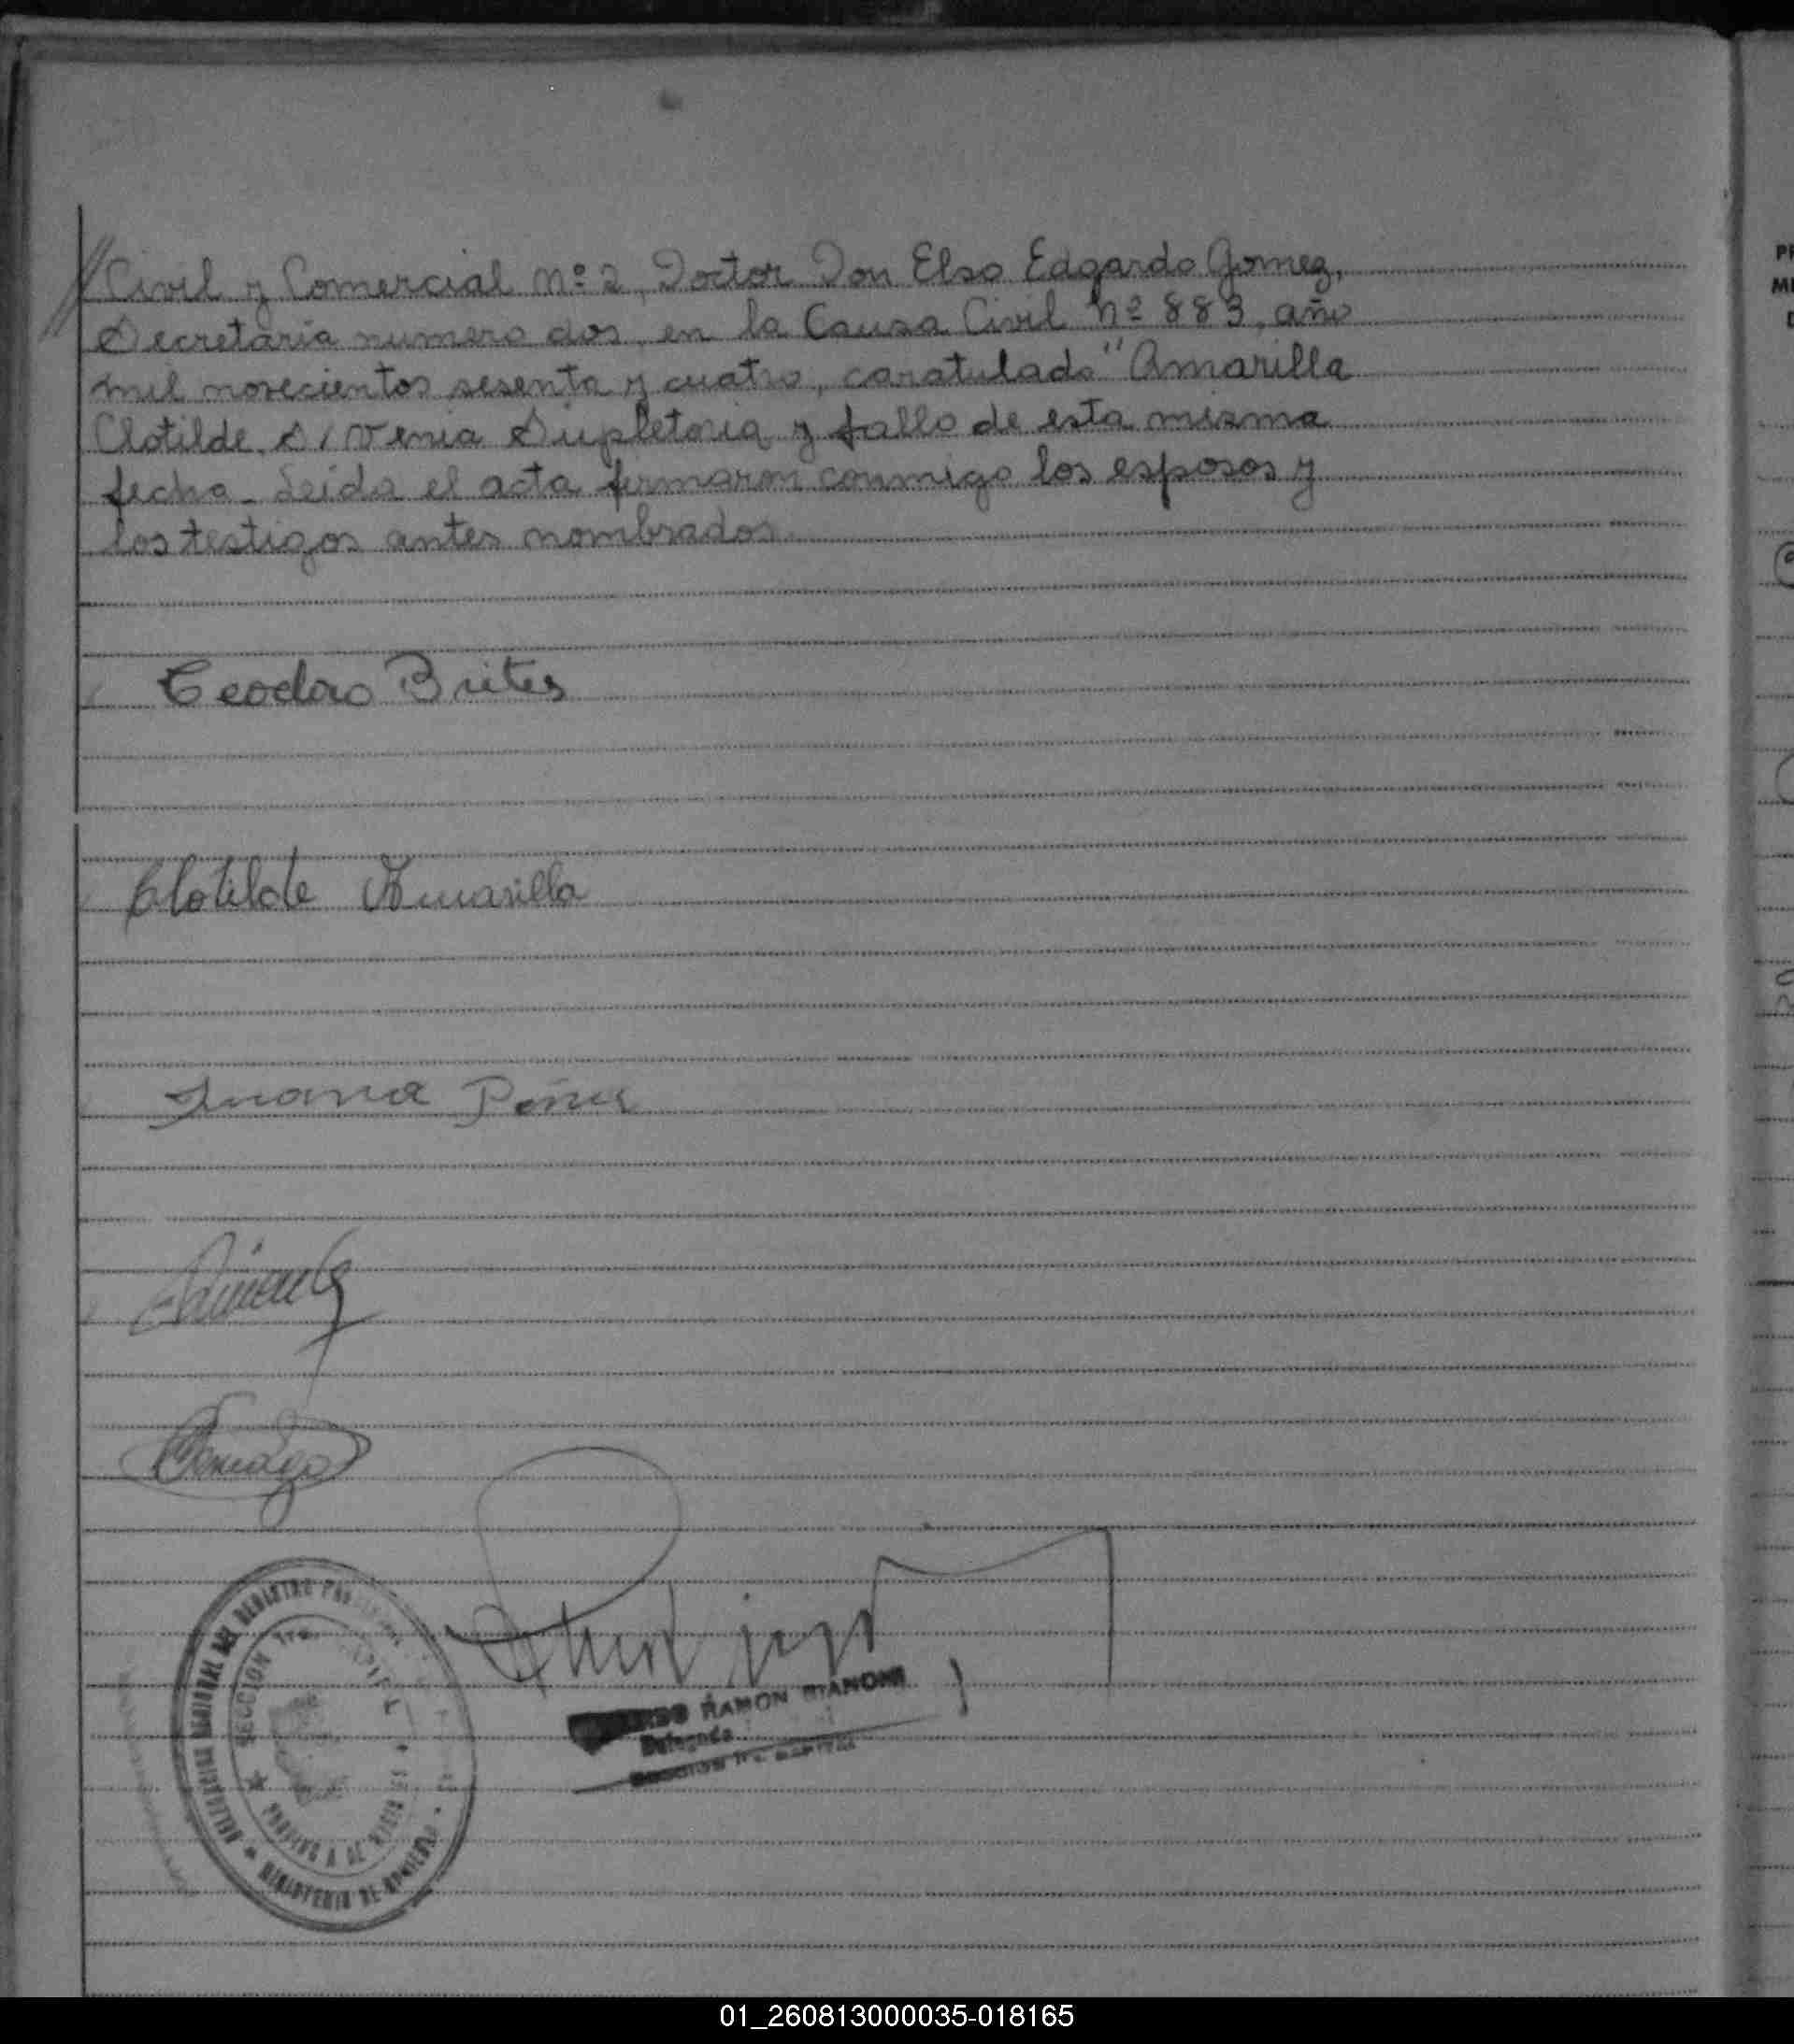 // Civil y Comercial Nº 2, Doctor Don Elso Edgardo Gomez,
Secretaria numero dos, en la Causa Civil Nº 883, año
mil novecientos sesenta y cuatro, caratulado "Amarilla
Clotilde S/ Venia Supletoria y fallo de esta misma
fecha - Leida el acta firmaron conmigo los esposos y
los testigos antes nombrados.
Teodoro Brites
Clotilde Amarilla
Juana
RAMON BIANCHI
Delegado
SECCION
MINISTERIO DE GOBIERNO
01_260813000035-018165